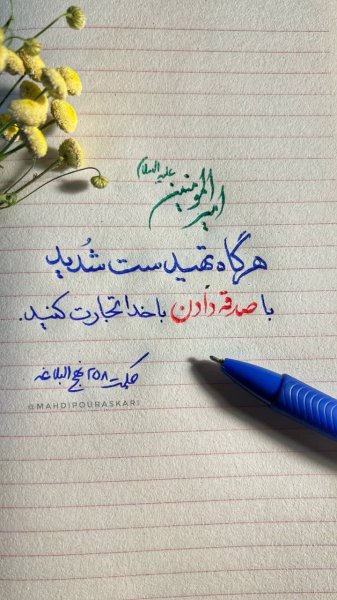 امیرالمومنین علیه السلام
هرگاه تهیدست شُدید
با صدقه دادن با خدا تجارت کنید.
حکمت ۲۵۸ نهج البلاغه
@MAHDIPOURASKARI